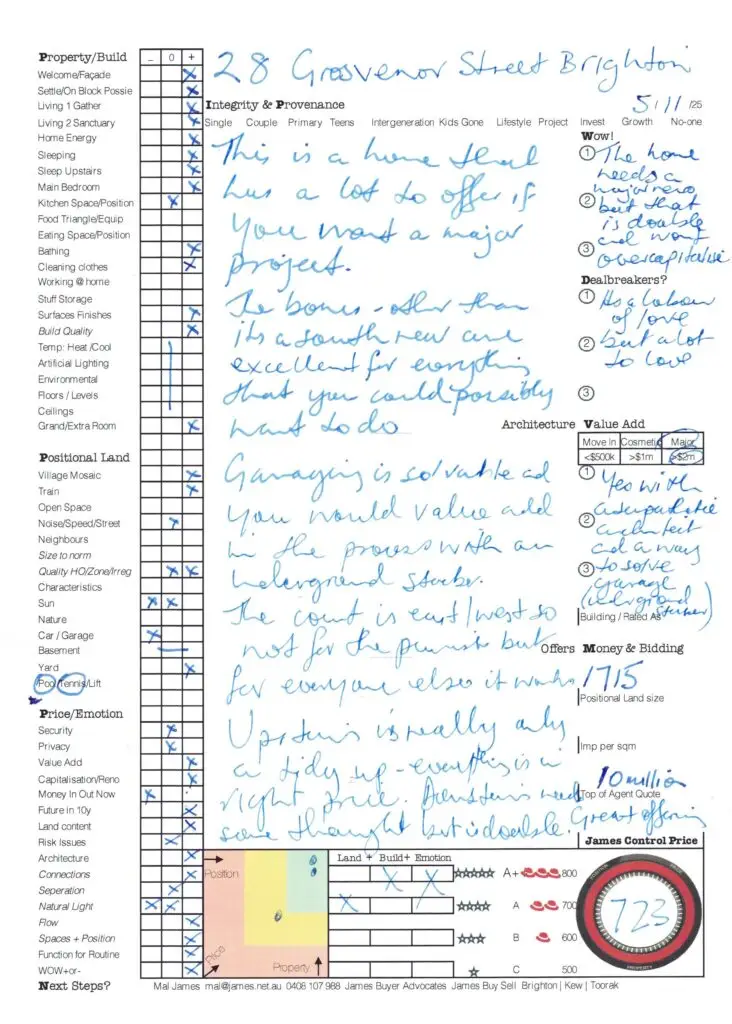 28 Grosvenor Street Brighton
Property/Build
_ 0 +
Welcome/Façade
Settle/On Block Possie
Living 1 Gather
Living 2 Sanctuary
Home Energy
Sleeping
Sleep Upstairs
Main Bedroom
Kitchen Space/Position
Food Triangle/Equip
Eating Space/Position
Bathing
Cleaning clothes
Working @ home
Stuff Storage
Surfaces Finishes
Build Quality
Temp: Heat /Cool
Artificial Lighting
Environmental
Floors / Levels
Ceilings
Grand/Extra Room
Positional Land
Village Mosaic
Train
Open Space
Noise/Speed/Street
Neighbours
Size to norm
Quality HO/Zone/Irreg
Characteristics
Sun
Nature
Car / Garage
Basement
Yard
Pool/Tennis/Lift
Price/Emotion
Security
Privacy
Value Add
Capitalisation/Reno
Money In Out Now
Future in 10y
Land content
Risk Issues
Architecture
Connections
Seperation
Natural Light
Flow
Spaces + Position
Function for Routine
WOW+or-
Next Steps?
Integrity & Provenance
5/11 /25
Single Couple Primary Teens Intergeneration Kids Gone Lifestyle Project Invest Growth No-one
This is a home that
has a lot to offer if
you want a major
project.
The bones - other than
its a south rear are
excellent for everything
that you could possibly
want to do
Garaging is solvable ad
you would value add
in the process with an
underground stacker.
The court is east/west so
not for the purists but
for everyone else it works
Upstairs is really only
a tidy up - everything is in
right price. Downstairs need
some thought but is doable. Great offering
Wow!
① The home
needs a
major reno
② but that
is doable
and wont
③ overcapitalise
Dealbreakers?
① Its a labour
of love
② but a lot
to love
③
Architecture Value Add
Move In Cosmetic Major
<$500k >$1m >$2m
① Yes with
architect
② and a way
③ to solve
garage
(underground
stacker)
Building / Rated As
Offers Money & Bidding
1715
Positional Land size
Imp per sqm
10 million
Top of Agent Quote
James Control Price
723
Position
Price
Property
Land + Build + Emotion
A+ 800
A 700
B 600
C 500
Mal James mal@james.net.au 0408 107 988 James Buyer Advocates James Buy Sell Brighton | Kew | Toorak